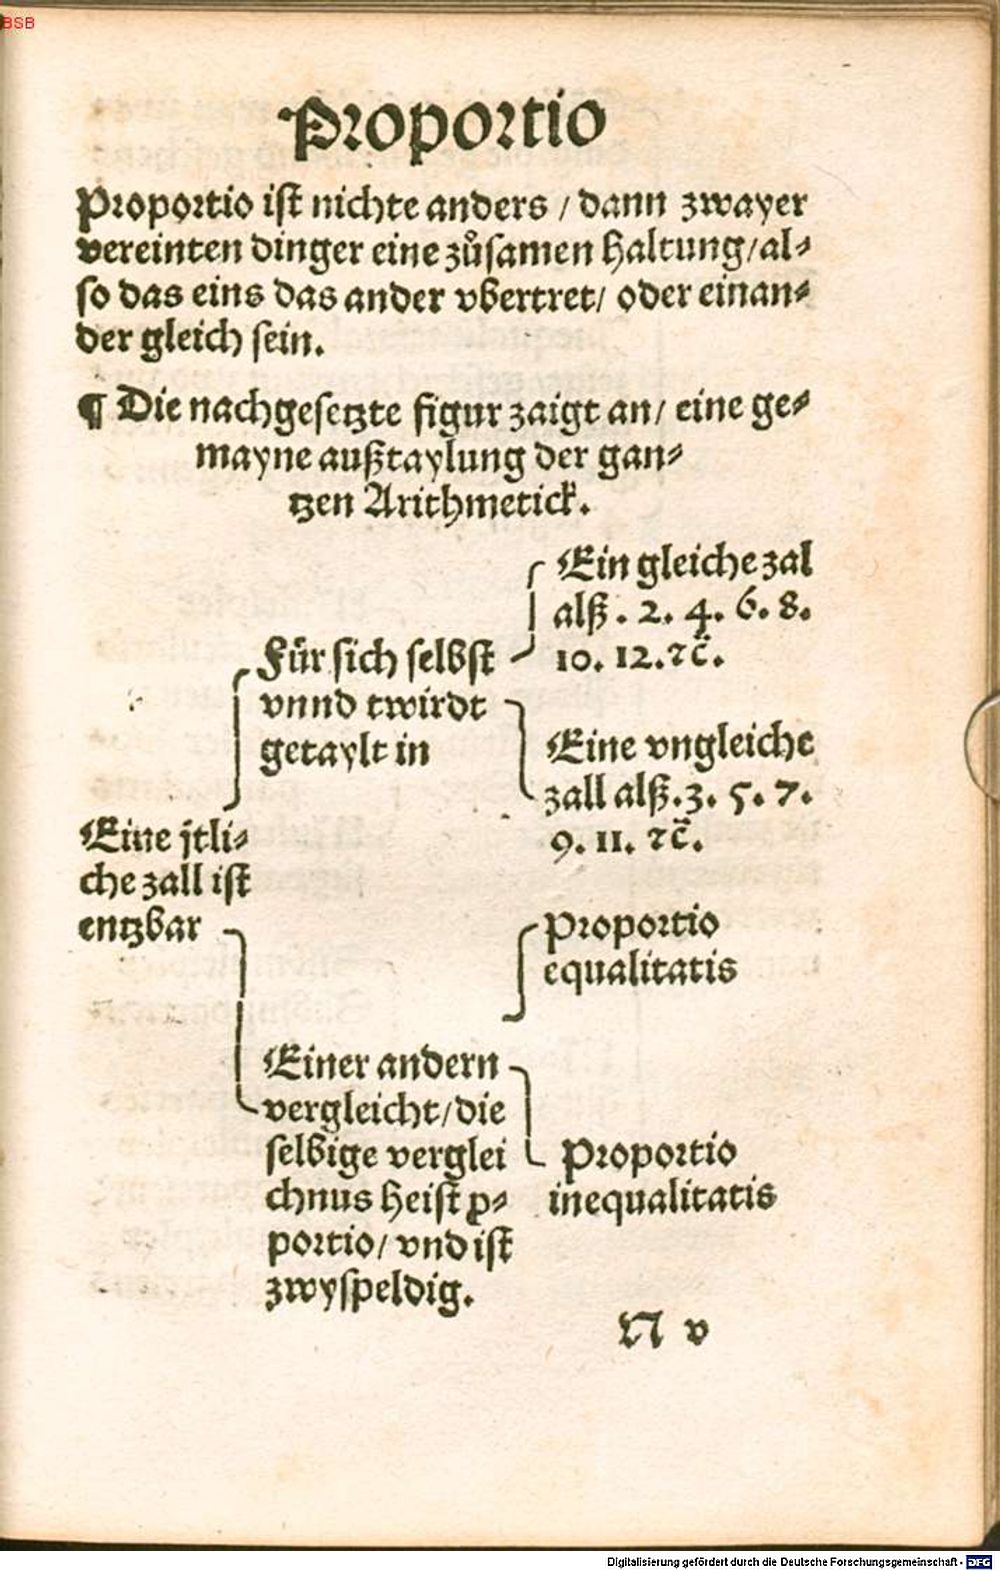 BSB
Proportio
Proportio ist nichte anders / dann zwayer
vereinten dinger eine zůsamen haltung/al⸗
so das eins das ander vbertret/ oder einan⸗
der gleich sein.
¶ Die nachgesetzte figur zaigt an/ eine ge⸗
mayne außtaylung der gan⸗
tzen Arithmetick.
Ein gleiche zal
alß . 2. 4. 6. 8.
10. 12. ⁊c̃.
Für sich selbst
vnnd twirdt
getaylt in
Eine vngleiche
zall alß. 3. 5. 7.
9. 11. ⁊c̃.
Eine jtli⸗
che zall ist
entzbar
Proportio
equalitatis
Einer andern
vergleicht/die
selbige verglei
chnus heist ꝓ⸗
portio/ vnd ist
zwyspeldig.
Proportio
inequalitatis
N v
Digitalisierung gefördert durch die Deutsche Forschungsgemeinschaft - DFG